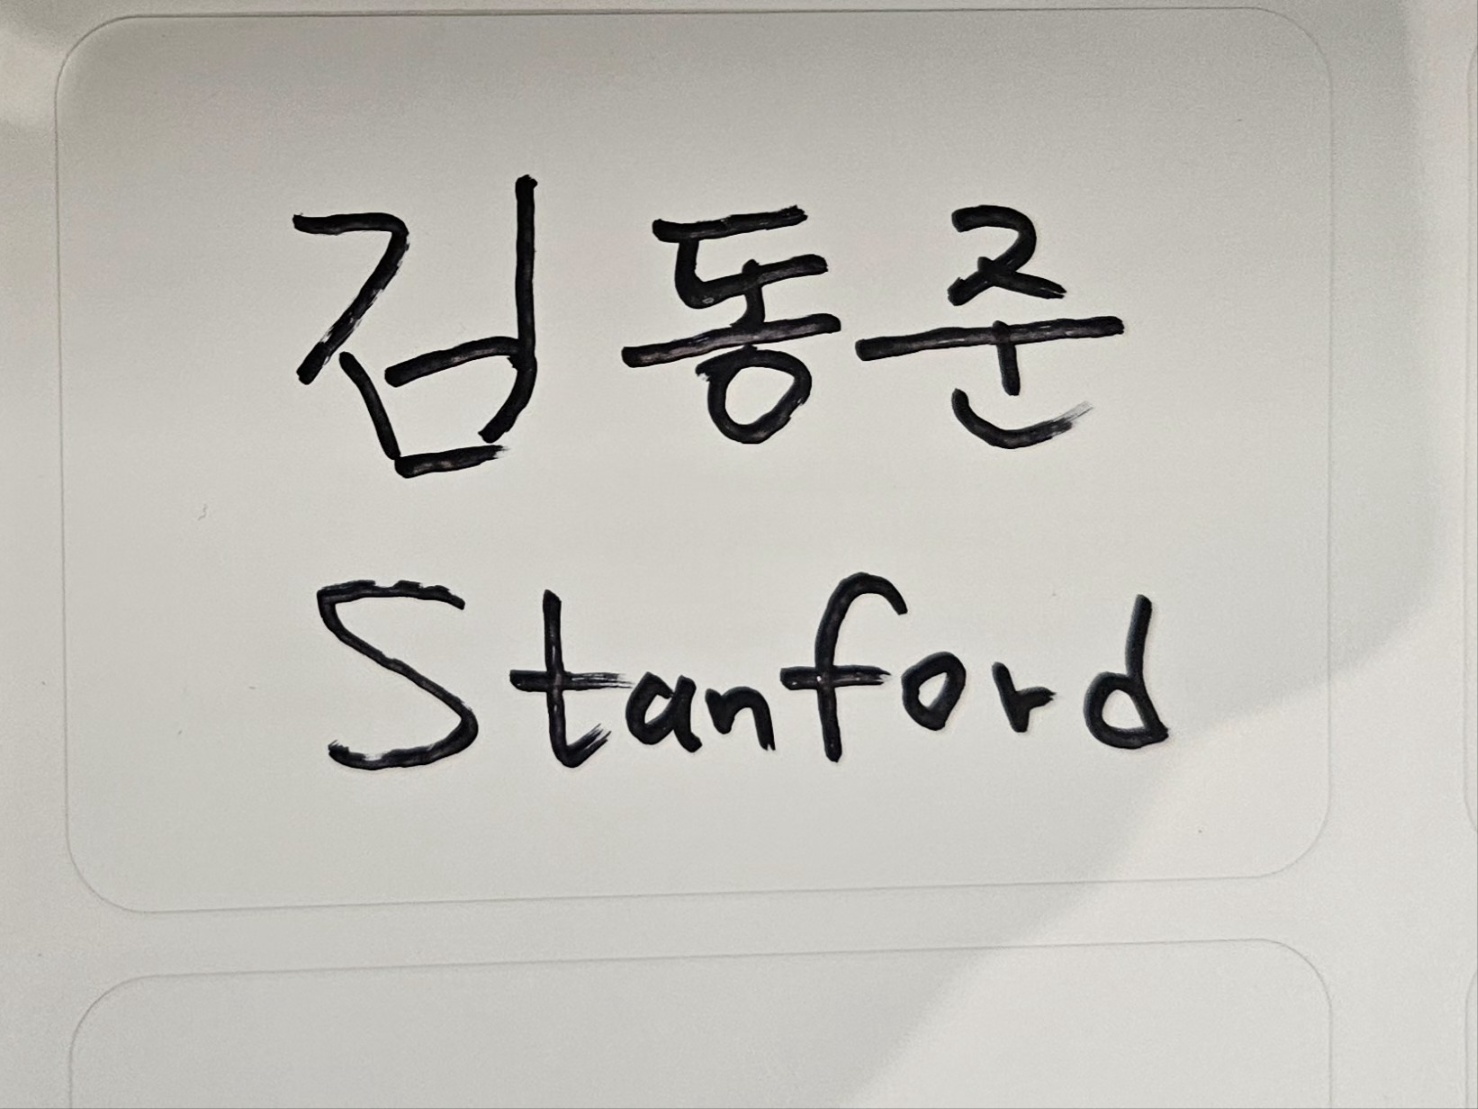 김동준
Stanford